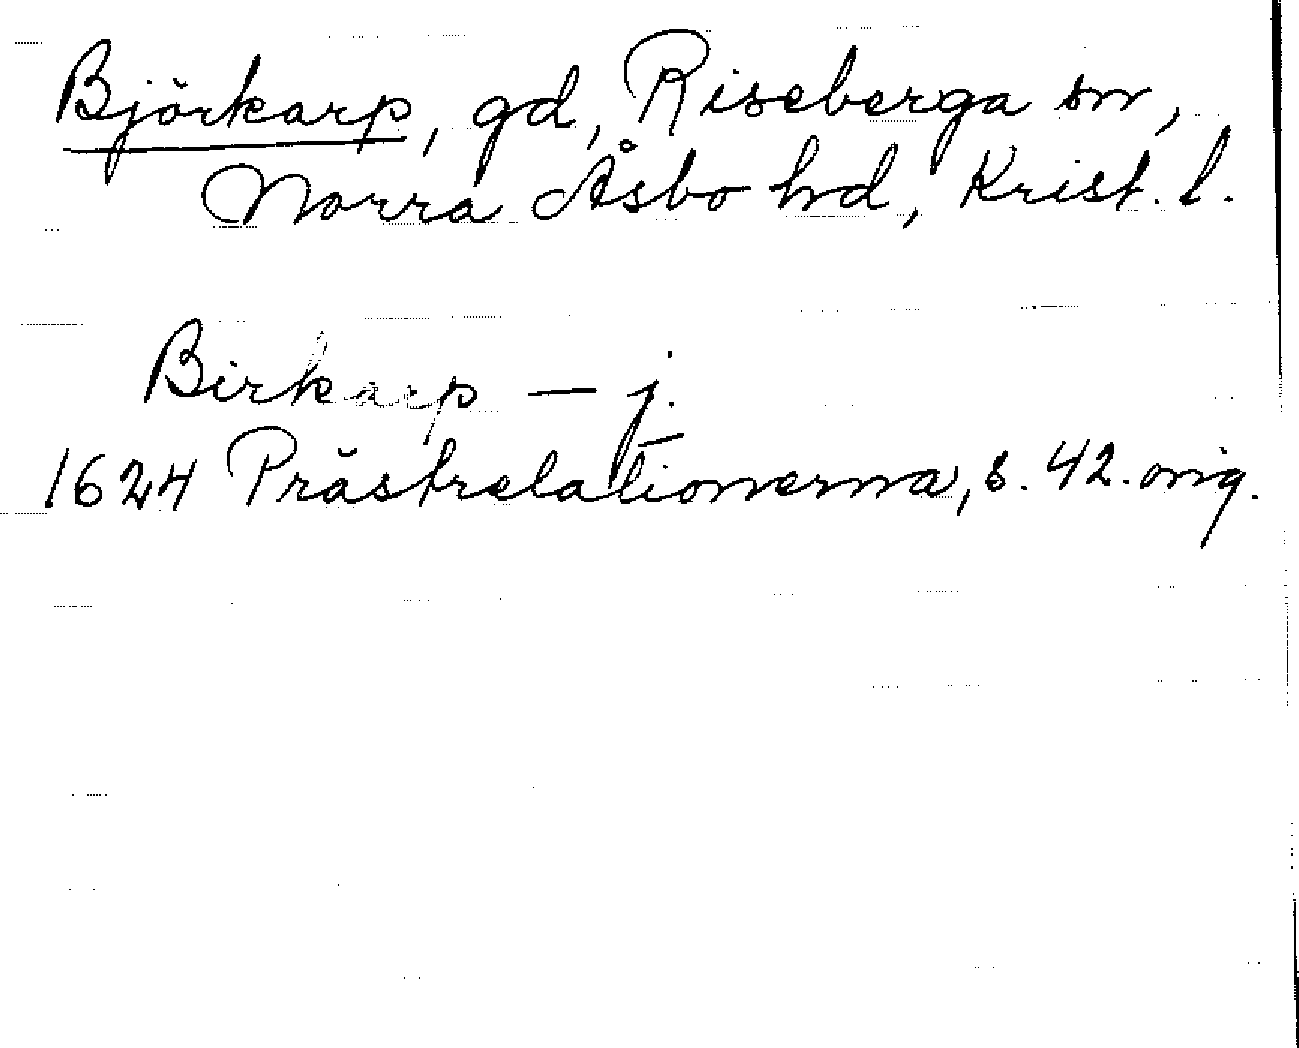 Björkarp, gd, Riseberga sn,
Norra Åsbo hd, Krist. l.
Birkarp — j.
1624 Prästrelationerna, s. 42. orig.